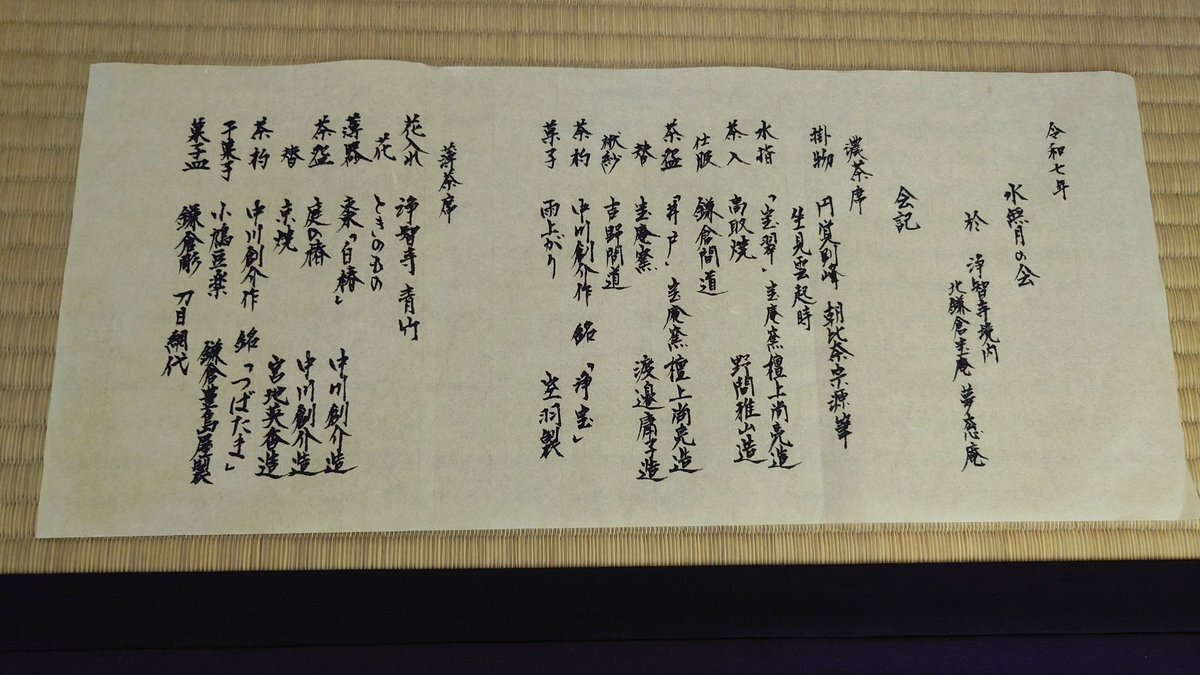 令和七年
水無月の会
於 浄智寺境内
北鎌倉宝庵 夢窓庵
会記
濃茶席
掛物 円覚別峰 朝比奈宗源筆
坐見雲起時
水指 「宝翠」宝庵窯 檀上尚亮造
茶入 高取焼 野間雅山造
仕服 鎌倉間道
茶盌 「井戸」宝庵窯 檀上尚亮造
替 宝庵窯 渡邉庸子造
帛紗 吉野間道
茶杓 中川創介作 銘「浄宝」
菓子 雨上がり 空羽製
薄茶席
花入れ 浄智寺 青竹
花 ときのもの
薄器 棗「白椿」 中川創介造
茶盌 庭の椿 中川創介造
替 京焼 宮地英香造
茶杓 中川創介作 銘「つばたま」
干菓子 小鳩豆楽 鎌倉豊島屋製
菓子皿 鎌倉彫 刀目網代